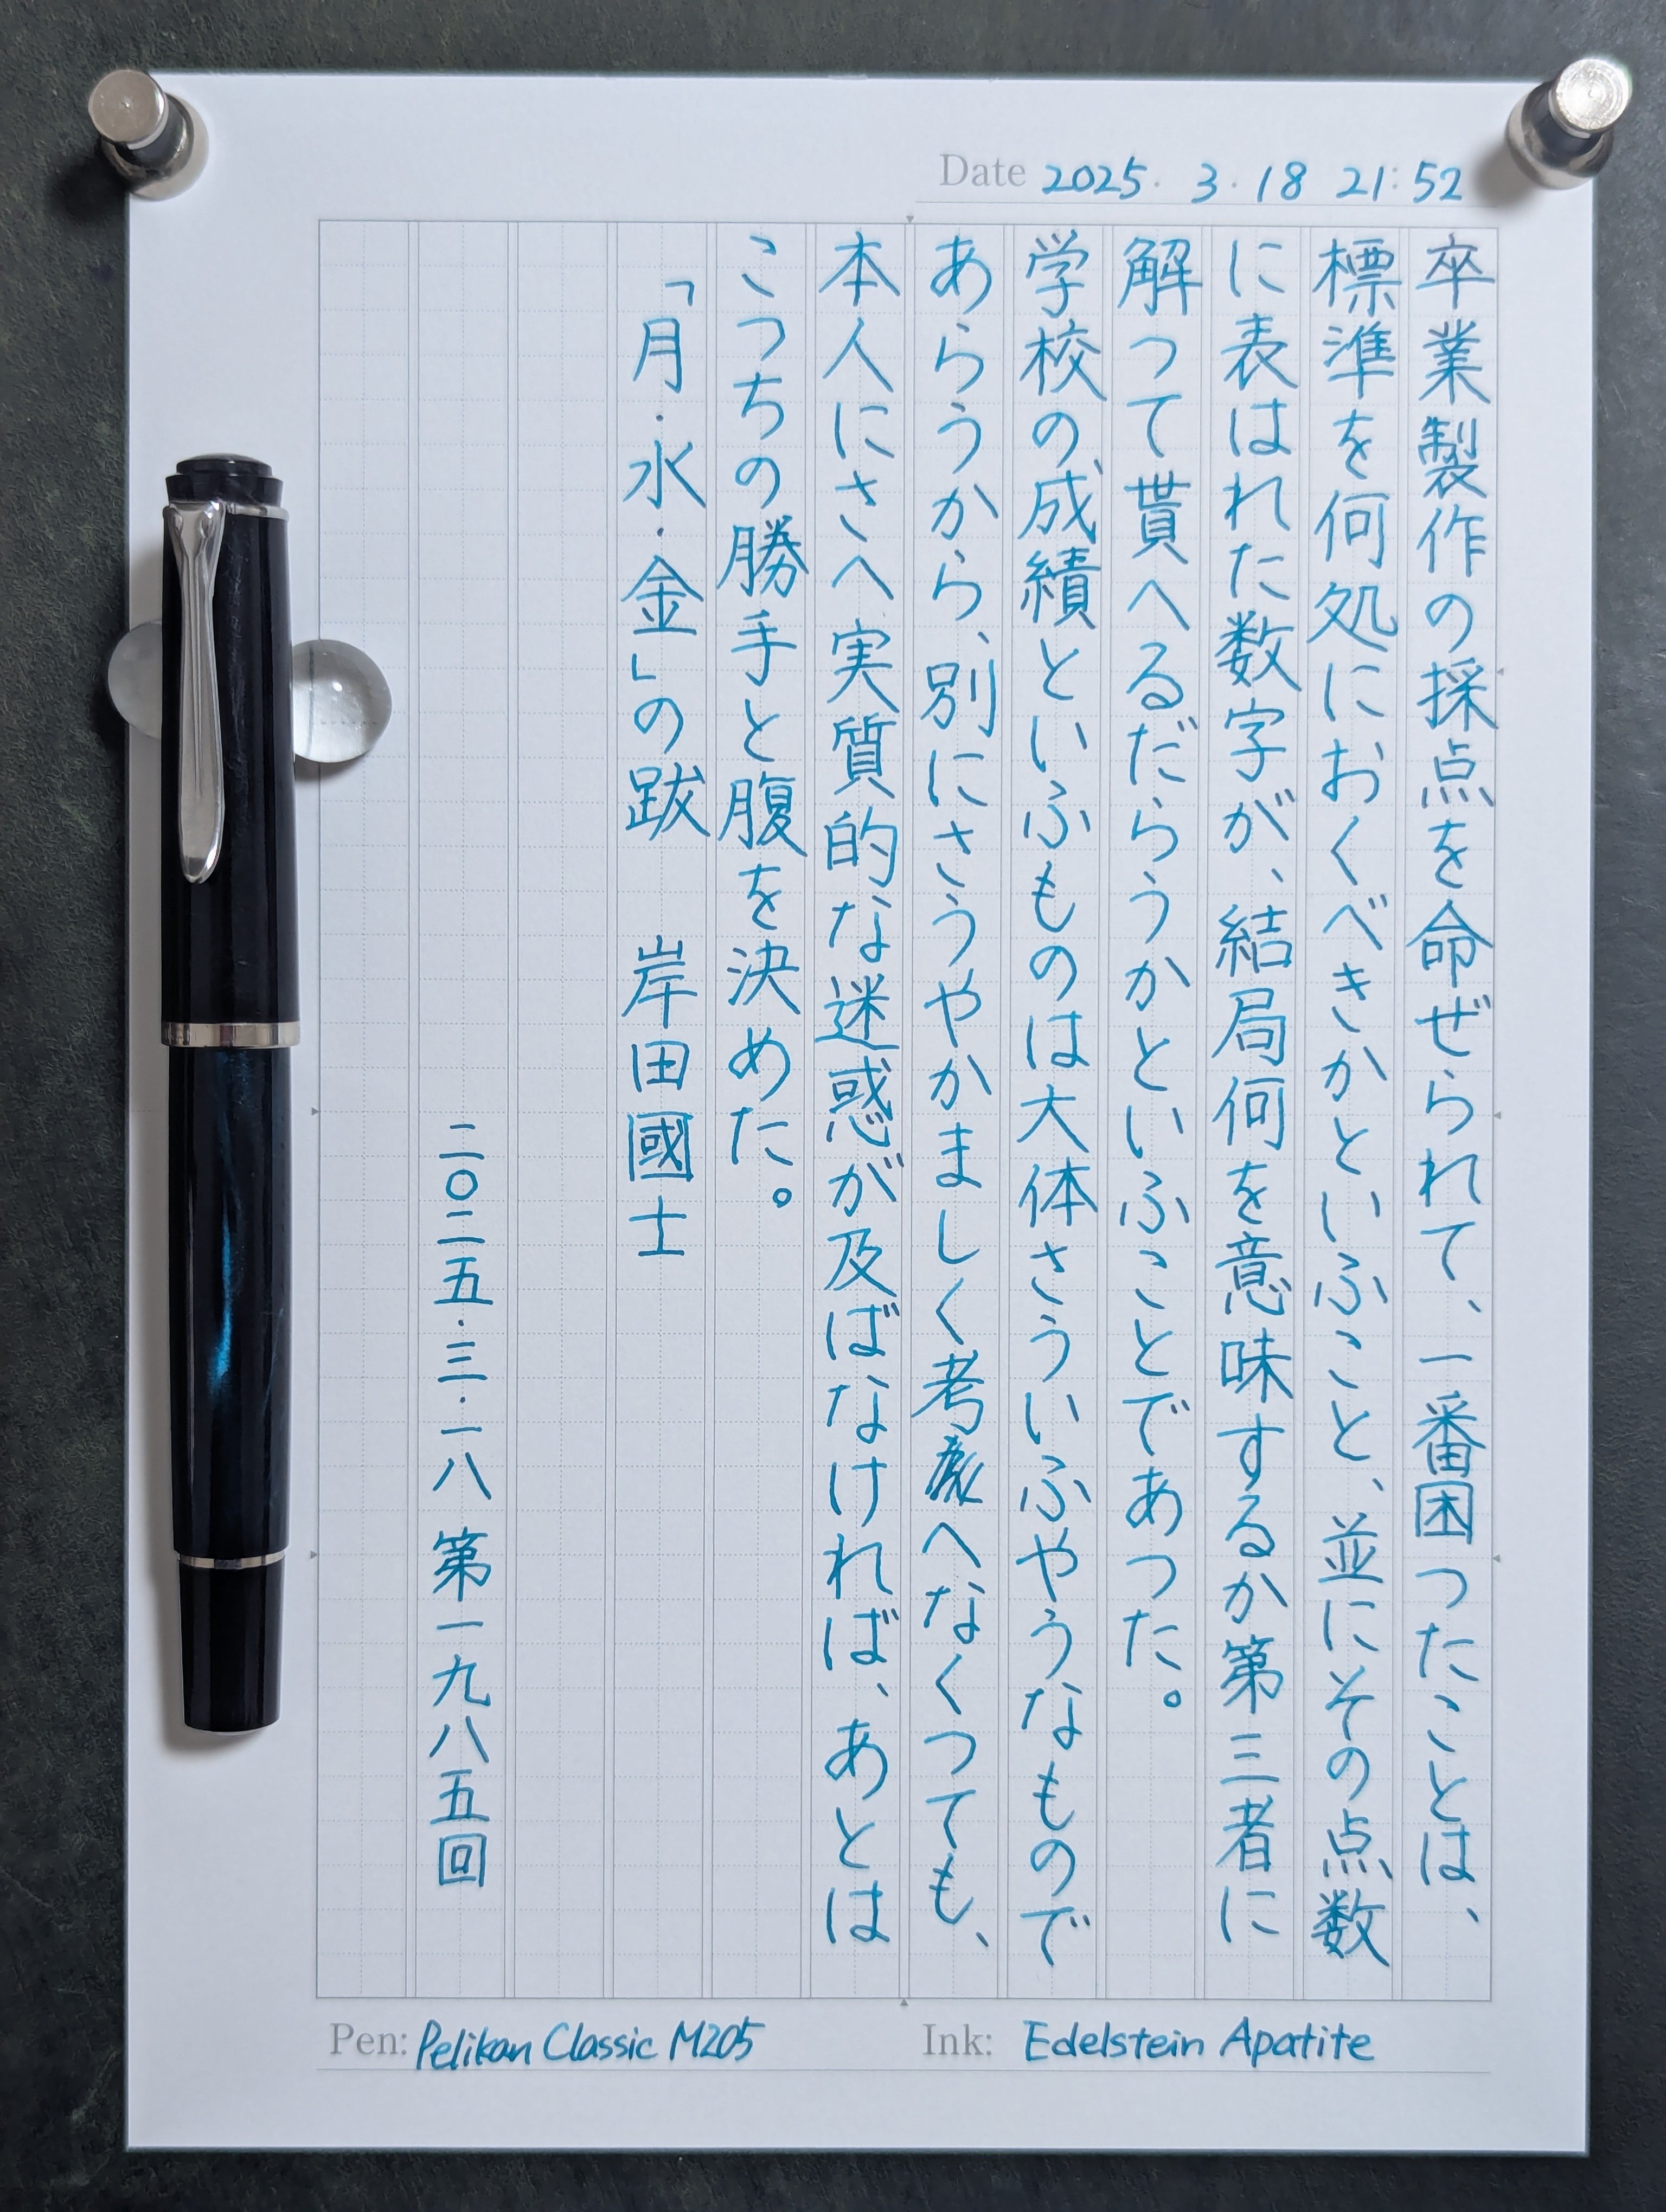 Date 2025. 3. 18 21:52
卒業製作の採点を命ぜられて、一番困つたことは、
標準を何処におくべきかといふこと、並にその点数
に表はれた数字が、結局何を意味するか第三者に
解つて貰へるだらうかといふことであつた。
学校の成績といふものは大体さういふやうなもので
あらうから、別にさうやかましく考へなくつても、
本人にさへ実質的な迷惑が及ばなければ、あとは
こつちの勝手と腹を決めた。
「月・水・金」の跋 岸田國士
二〇二五・三・一八 第一九八五回
Pen: Pelikan Classic M205
Ink: Edelstein Apatite